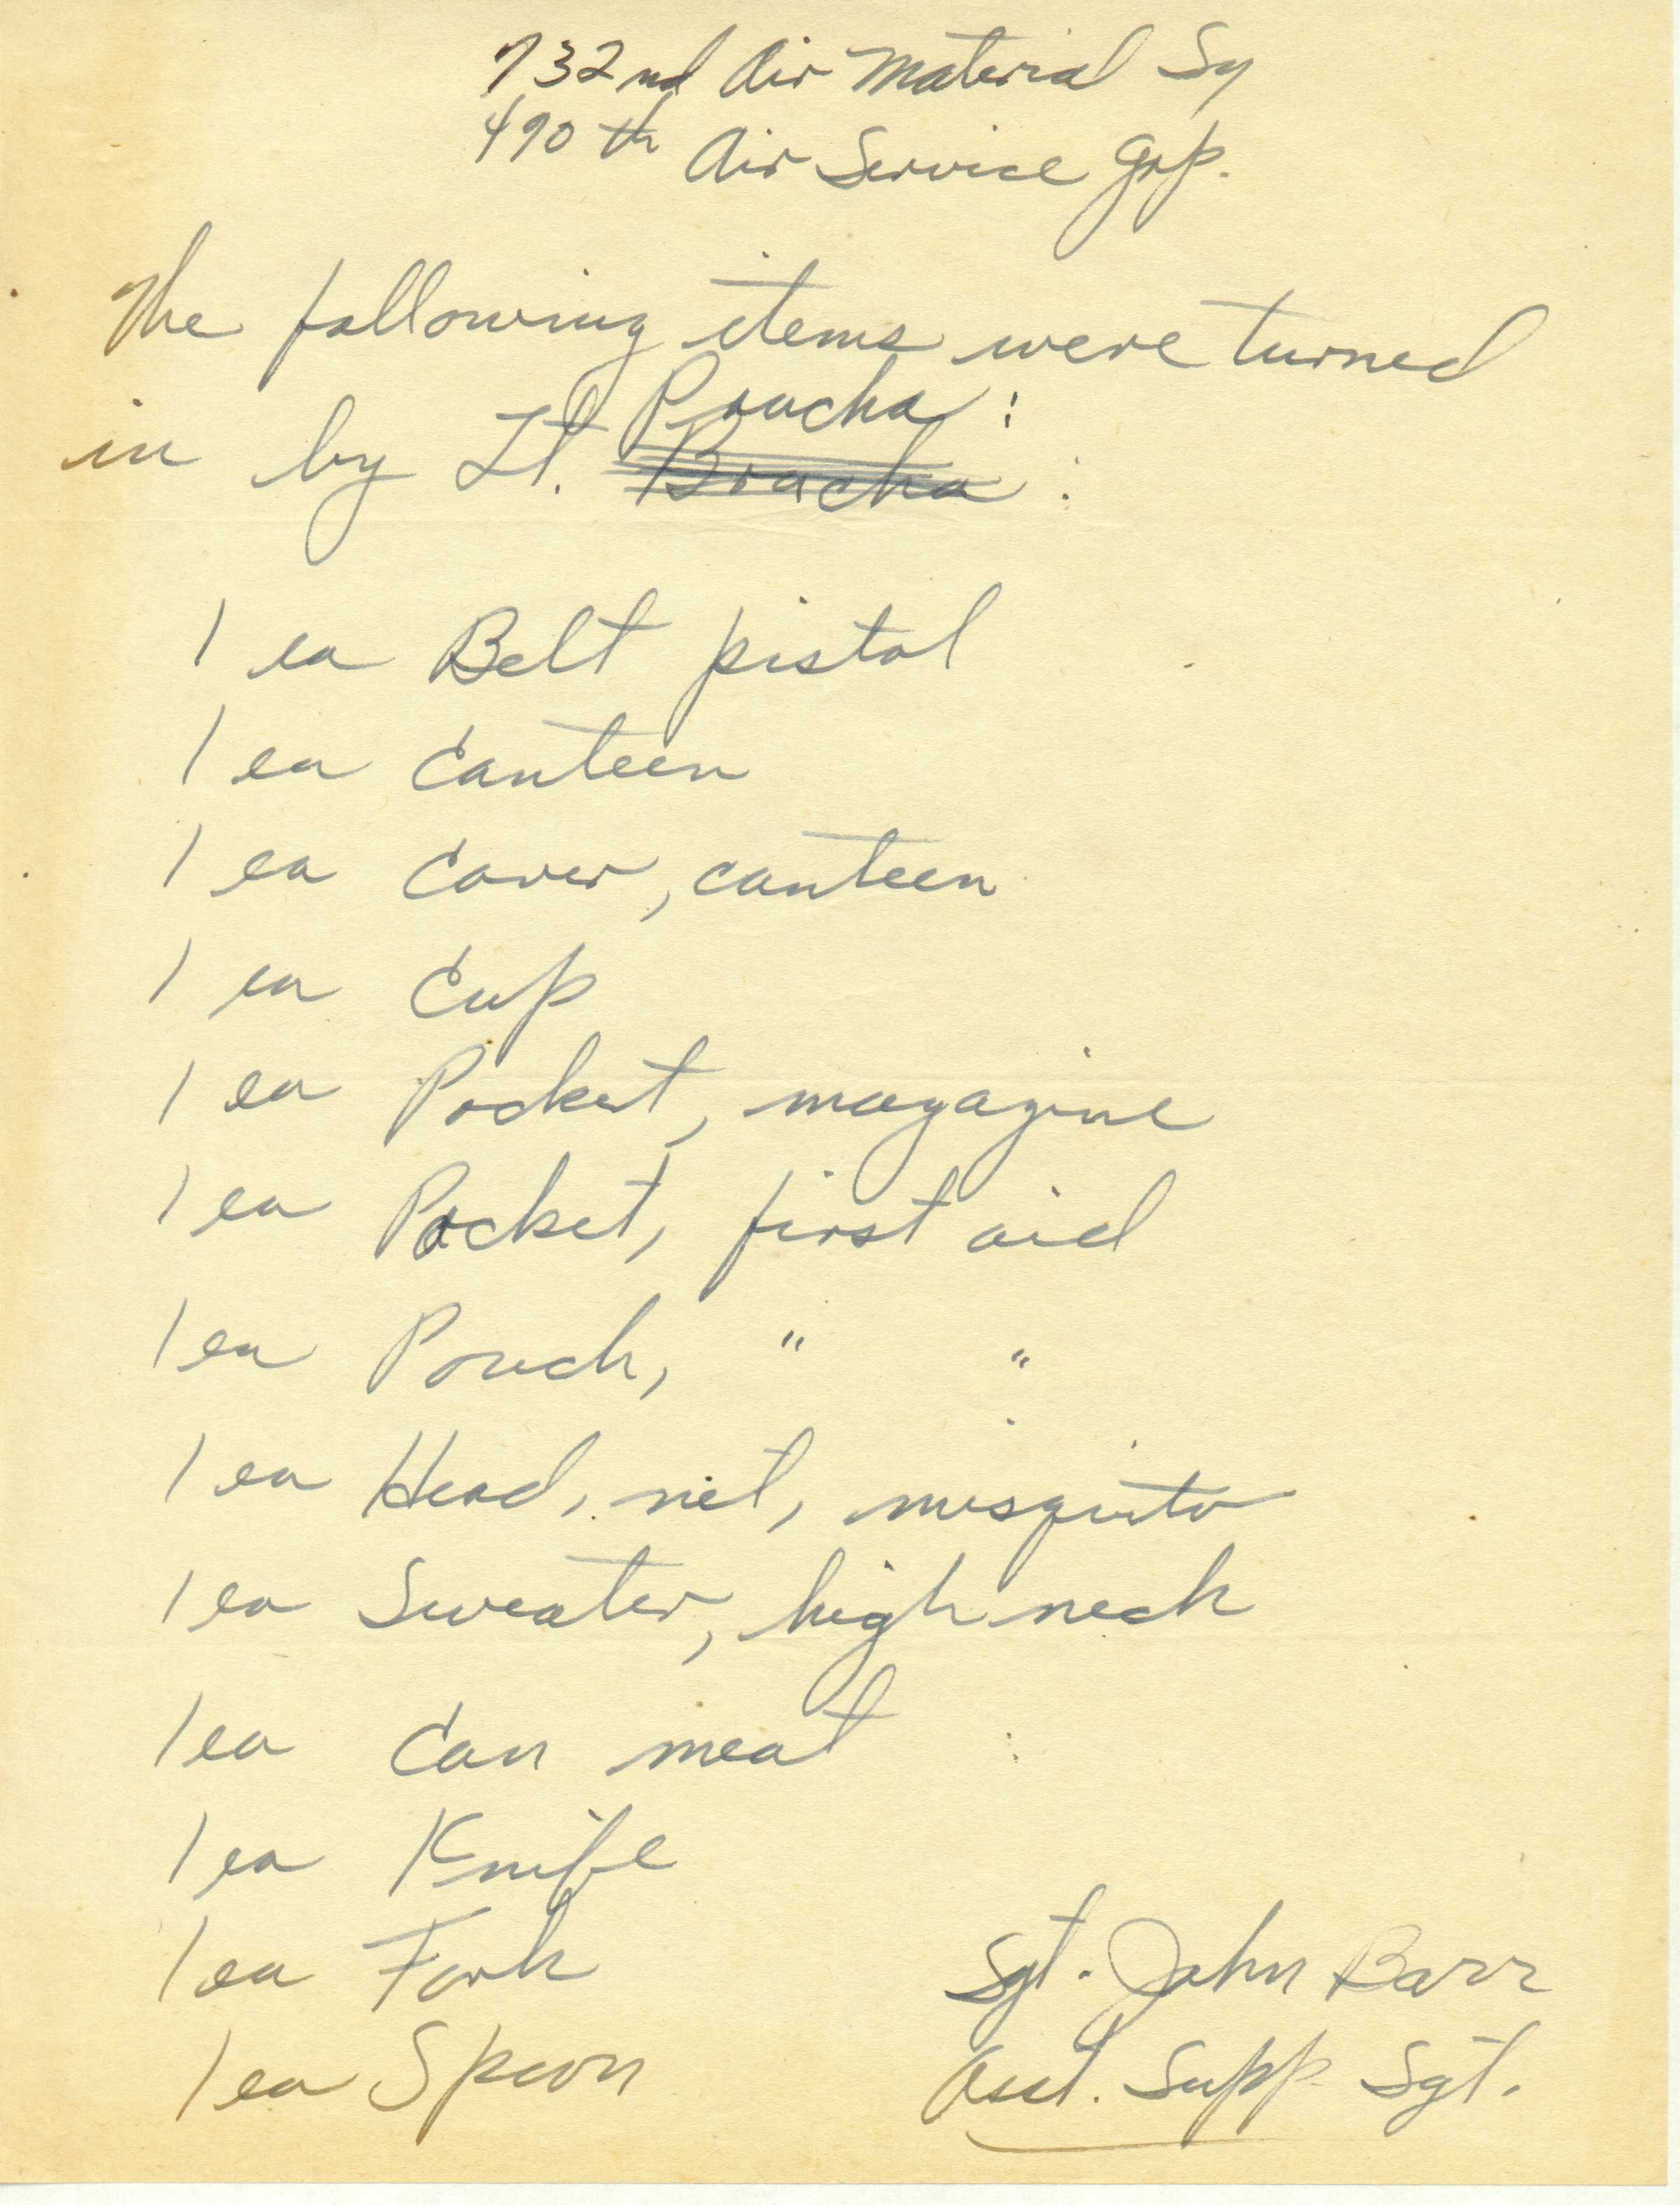 732nd Air Material Sq
490th Air Service Grp.
The following items were turned
Proucha:
in by Lt. Broucha:
1 ea Belt pistol
1 ea Canteen
1 ea Cover, canteen
1 ea Cup
1 ea Pocket, magazine
1 ea Packet, first aid
1 ea Pouch, " "
1 ea Head, net, mosquito
1 ea Sweater, high neck
1 ea Can meat
1 ea Knife
1 ea Fork
1 ea Spoon
Sgt. John Barr
Asst. Supp Sgt.